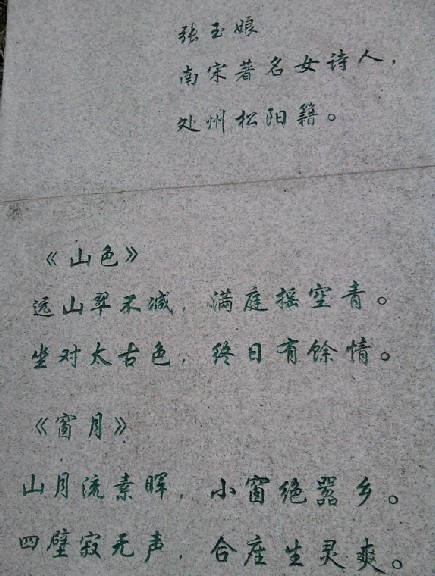 张玉娘
南宋著名女诗人，
处州松阳籍。
《山色》
远山翠不减，满庭摇空青。
坐对太古色，终日有馀情。
《窗月》
山月流素晖，小窗绝嚣乡。
四壁寂无声，合座生灵爽。